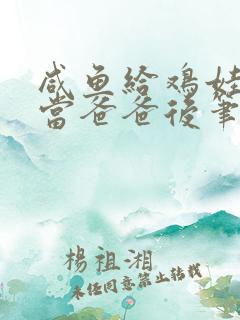 咸鱼给鸡娃
当爸爸後筆
楊祖湘
未经同意禁止转载